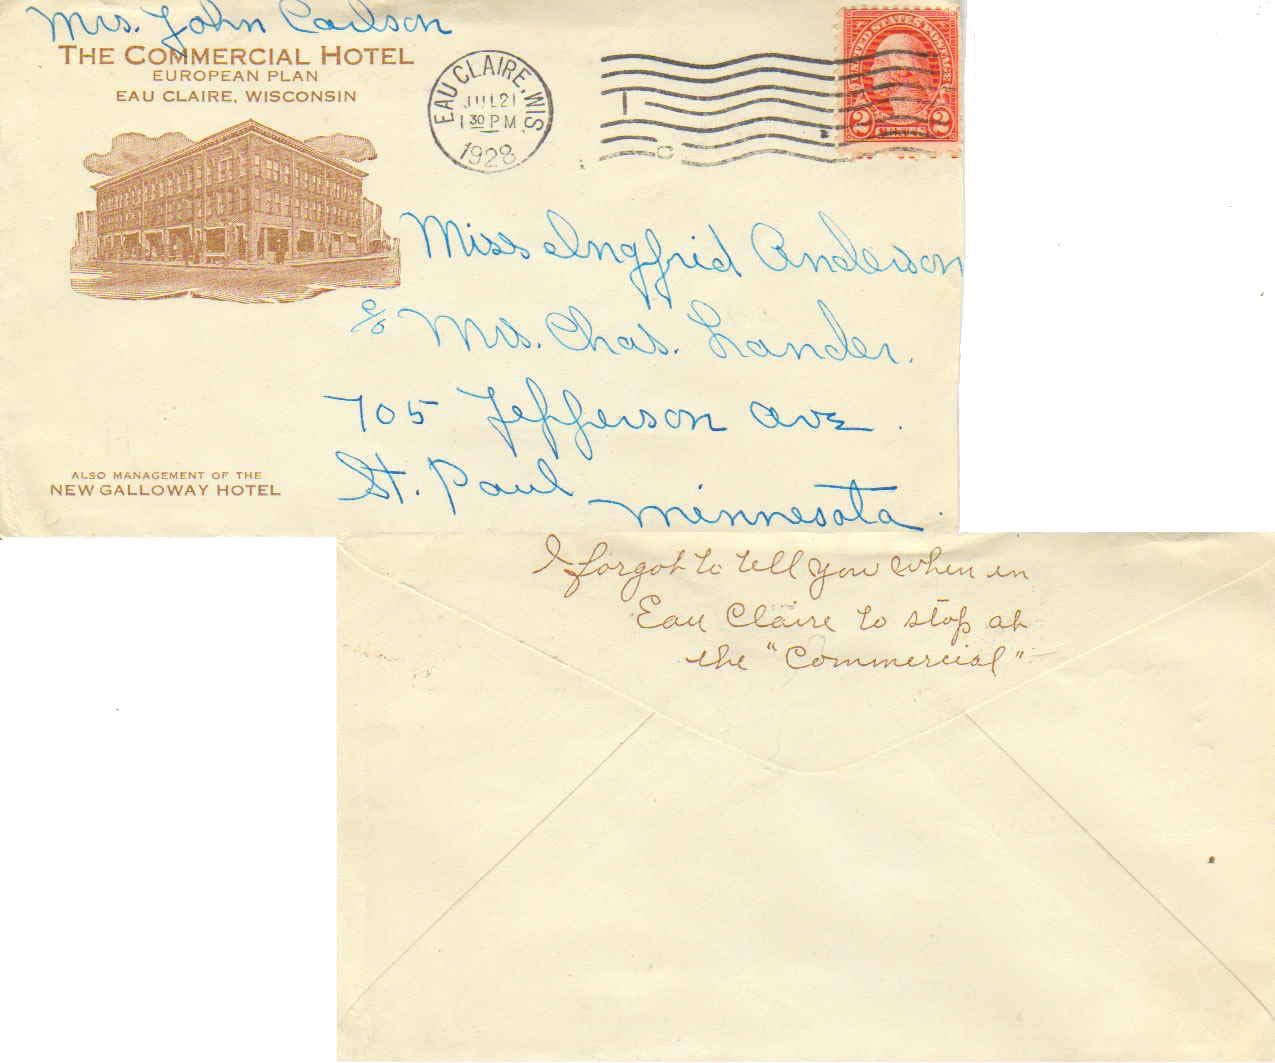 Mrs. John Carlson
THE COMMERCIAL HOTEL
EUROPEAN PLAN
EAU CLAIRE, WISCONSIN
EAU CLAIRE, WIS.
JUL 21
1 30 PM
1928
UNITED STATES POSTAGE
2 CENTS 2
Miss Ingfrid Anderson
c/o Mrs. Chas. Lander.
705 Jefferson Ave.
St. Paul
Minnesota.
ALSO MANAGEMENT OF THE
NEW GALLOWAY HOTEL
I forgot to tell you when in
Eau Claire to stop at
the "Commercial"